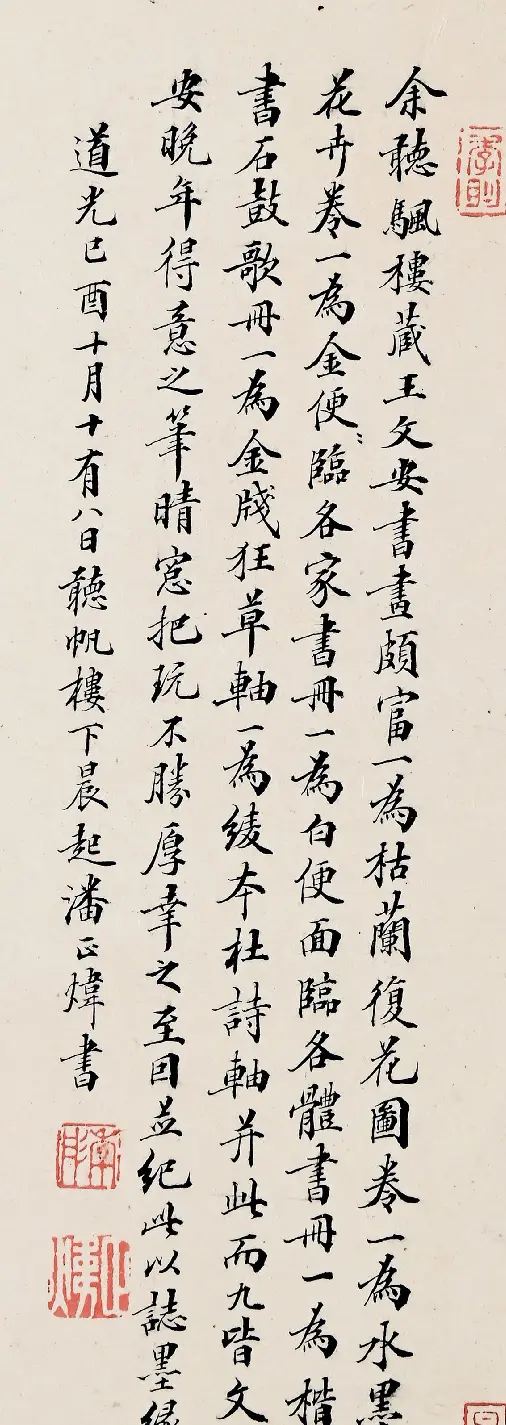 余聽颿樓藏王文安書畫頗富一為枯蘭復花圖卷一為水墨
花卉卷一為金便〻臨各家書冊一為白便面臨各體書冊一為楷
書石鼓歌冊一為金牋狂草軸一為綾本杜詩軸并此而九皆文
安晚年得意之筆晴窻把玩不勝厚幸之至因並紀此以誌墨緣
道光己酉十月十有八日聽帆樓下晨起潘正煒書